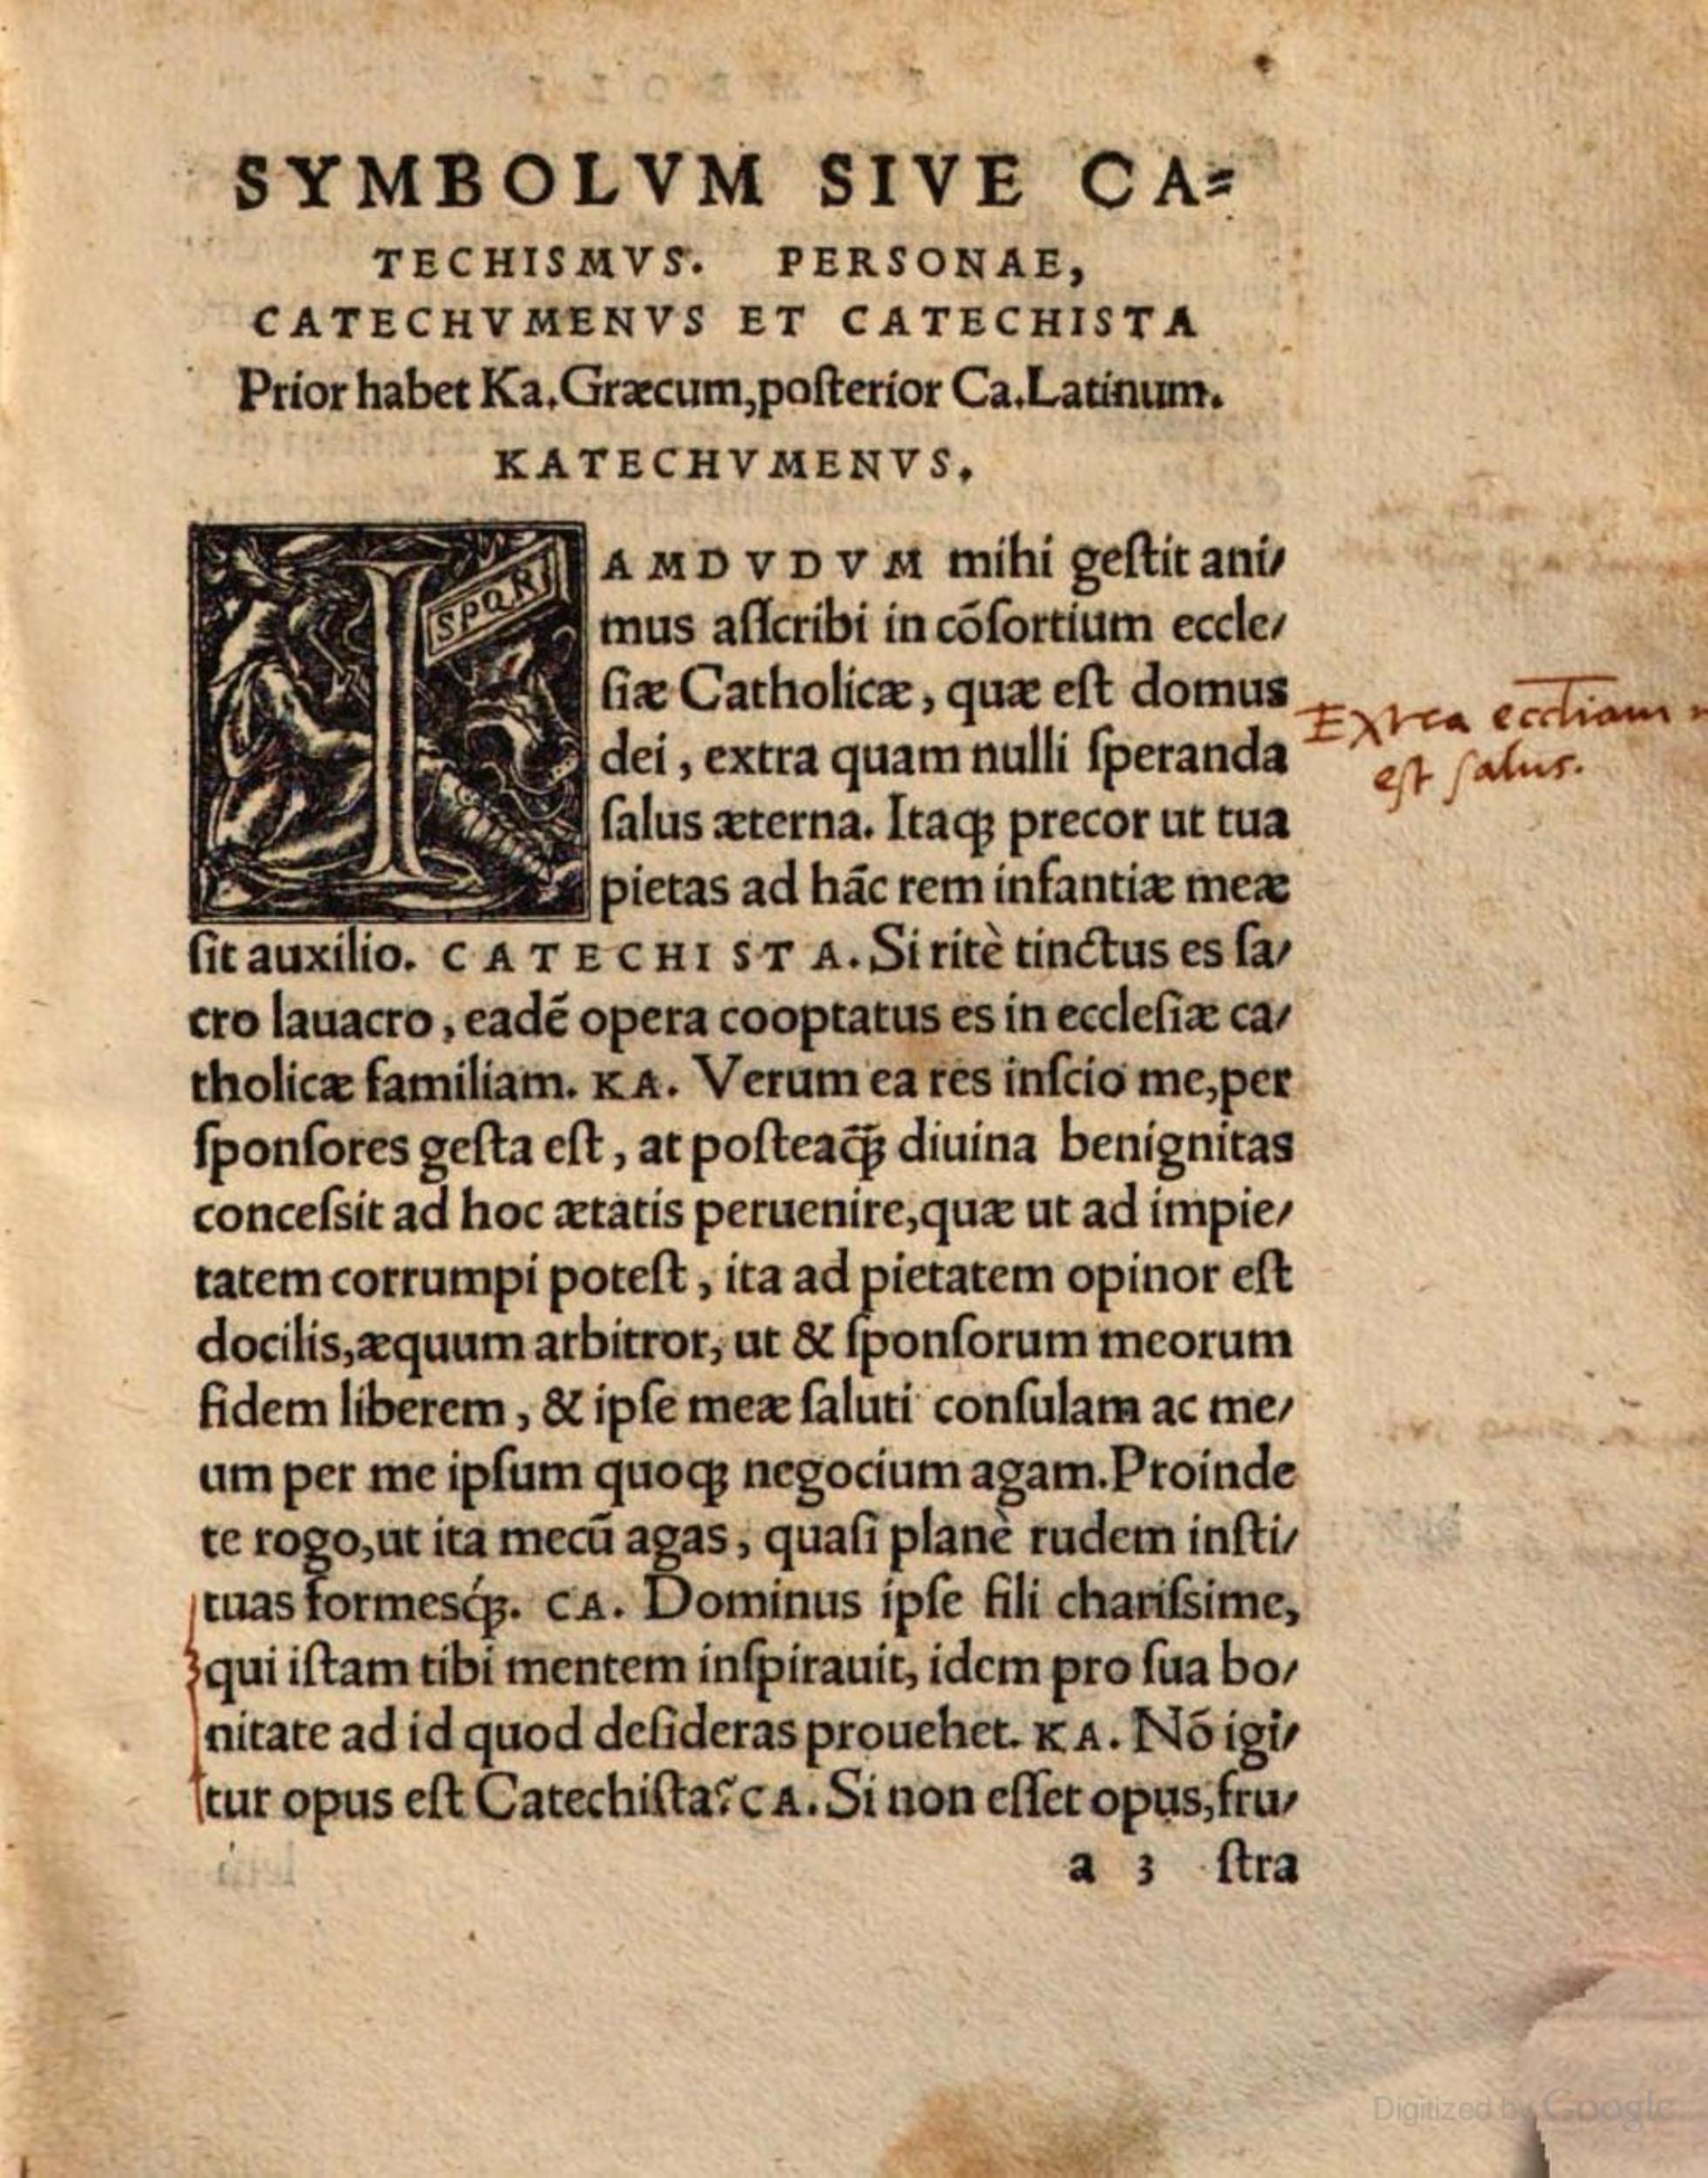 SYMBOLVM SIVE CA=
TECHISMVS. PERSONAE,
CATECHVMENVS ET CATECHISTA
Prior habet Ka. Græcum, poſterior Ca. Latinum.
KATECHVMENVS.
IAMDVDVM mihi geſtit ani/
mus aſſcribi in cõſortium eccle/
ſiæ Catholicæ, quæ eſt domus
dei, extra quam nulli ſperanda
ſalus æterna. Itaqꝫ precor ut tua
pietas ad hãc rem infantiæ meæ
ſit auxilio. CATECHISTA. Si ritè tinctus es ſa/
cro lauacro, eadẽ opera cooptatus es in eccleſiæ ca/
tholicæ familiam. KA. Verum ea res inſcio me, per
ſponſores geſta eſt, at poſteaq̃ꝫ diuina benignitas
conceſsit ad hoc ætatis peruenire, quæ ut ad impie/
tatem corrumpi poteſt, ita ad pietatem opinor eſt
docilis, æquum arbitror, ut & ſponſorum meorum
fidem liberem, & ipſe meæ ſaluti conſulam ac me/
um per me ipſum quoqꝫ negocium agam. Proinde
te rogo, ut ita mecũ agas, quaſi planè rudem inſti/
tuas formesq́ꝫ. CA. Dominus ipſe fili chariſsime,
qui iſtam tibi mentem inſpirauit, idem pro ſua bo/
nitate ad id quod deſideras prouehet. KA. Nõ igi/
tur opus eſt Catechiſta? CA. Si non eſſet opus, fru/
a 3 ſtra
SPQR
Extra eccliam
eſt ſalus.
Digitized by Google